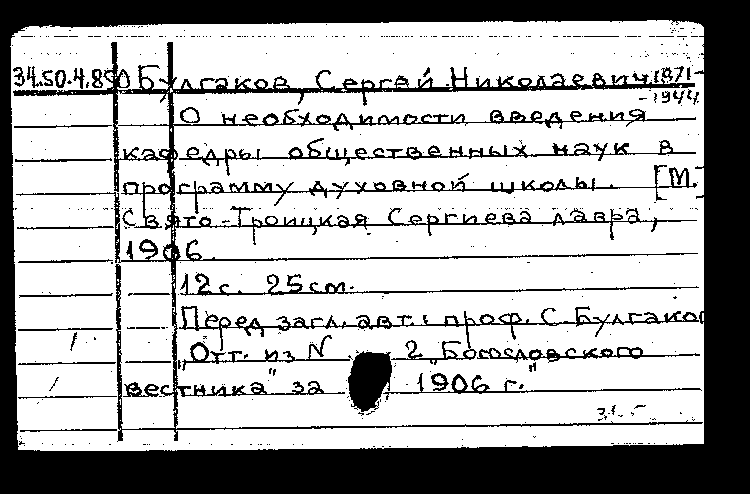 34.50.4.850 Булгаков, Сергей Николаевич, 1871-
-1944
О необходимости введения
кафедры общественных наук в
программу духовной школы. [М.]
Свято-Троицкая Сергиева лавра,
1906.
12 с. 25 см.
Перед загл. авт.: проф. С. Булгаков
"Отт. из N 2 "Богословского
вестника" за 1906 г."